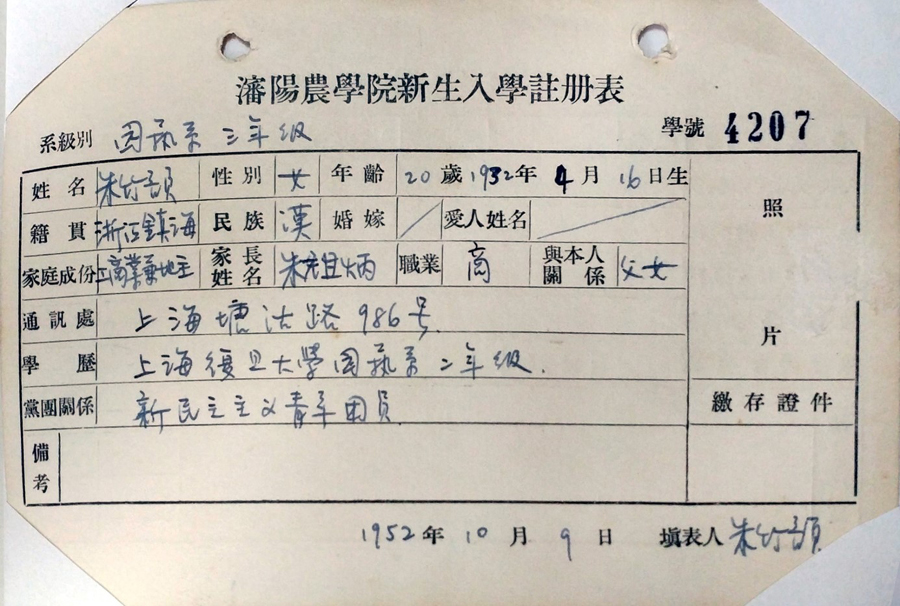 瀋陽農學院新生入學註册表
系級別 园藝系 三年級 學號 4207
姓名 朱竹韻 性別 女 年齡 20歲 1932年4月16日生
籍貫 浙江鎮海 民族 漢 婚嫁 愛人姓名
家庭成份 工商業兼地主 家長姓名 朱祖炳 職業 商 與本人關係 父女
通訊處 上海塘沽路986号
學歷 上海復旦大學园藝系二年級.
黨團關係 新民主主义青年团員
備考
照片
繳存證件
1952年10月9日 填表人 朱竹韻